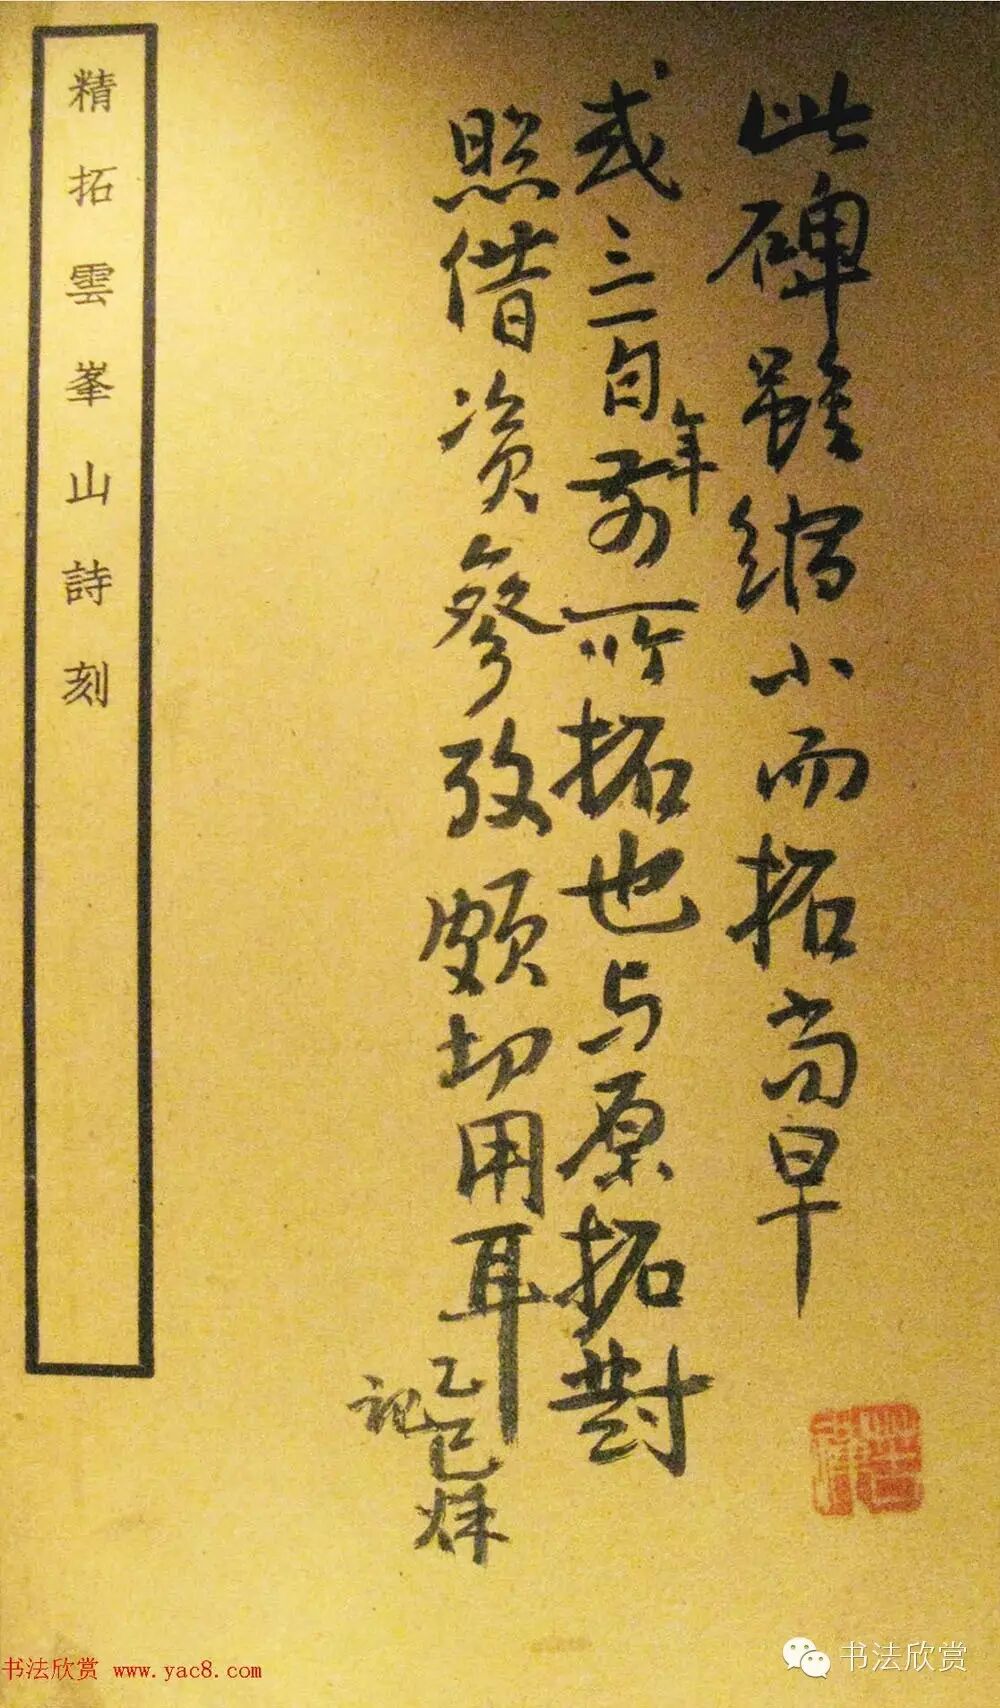 此碑雖縮小而拓尚早
或三百年前所拓也与原拓對
照借資參攷頗切用耳
乙巳秌
記
精拓雲峯山詩刻
书法欣赏 www.yac8.com
书法欣赏